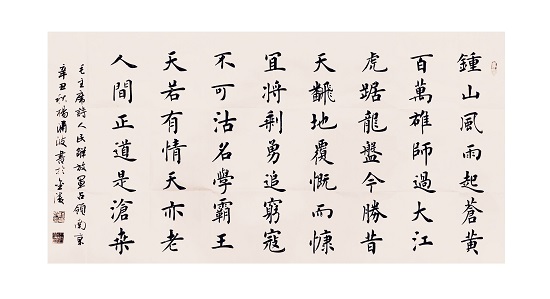 鍾山風雨起蒼黃
百萬雄師過大江
虎踞龍盤今勝昔
天翻地覆慨而慷
宜將剩勇追窮寇
不可沽名學霸王
天若有情天亦老
人間正道是滄桑
毛主席詩人民解放軍占領南京
辛丑秋楊浦波書於金陵